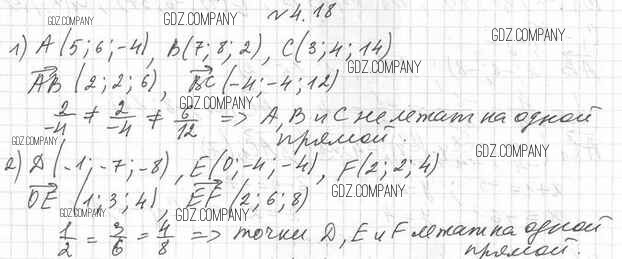 №4.18
1) A (5; 6; -4), B(7; 8; 2), C(3; 4; 14)
AB (2; 2; 6), BC (-4; -4; 12)
2/-4 ≠ 2/-4 ≠ 6/12 => A, B и C не лежат на одной
прямой.
2) D(-1; -7; -8), E(0; -4; -4), F(2; 2; 4)
DE (1; 3; 4), EF (2; 6; 8)
1/2 = 3/6 = 4/8 => точки D, E и F лежат на одной
прямой.
GDZ.COMPANY
GDZ.COMPANY
GDZ.COMPANY
GDZ.COMPANY
GDZ.COMPANY
GDZ.COMPANY
GDZ.COMPANY
GDZ.COMPANY
GDZ.COMPANY
GDZ.COMPANY
GDZ.COMPANY